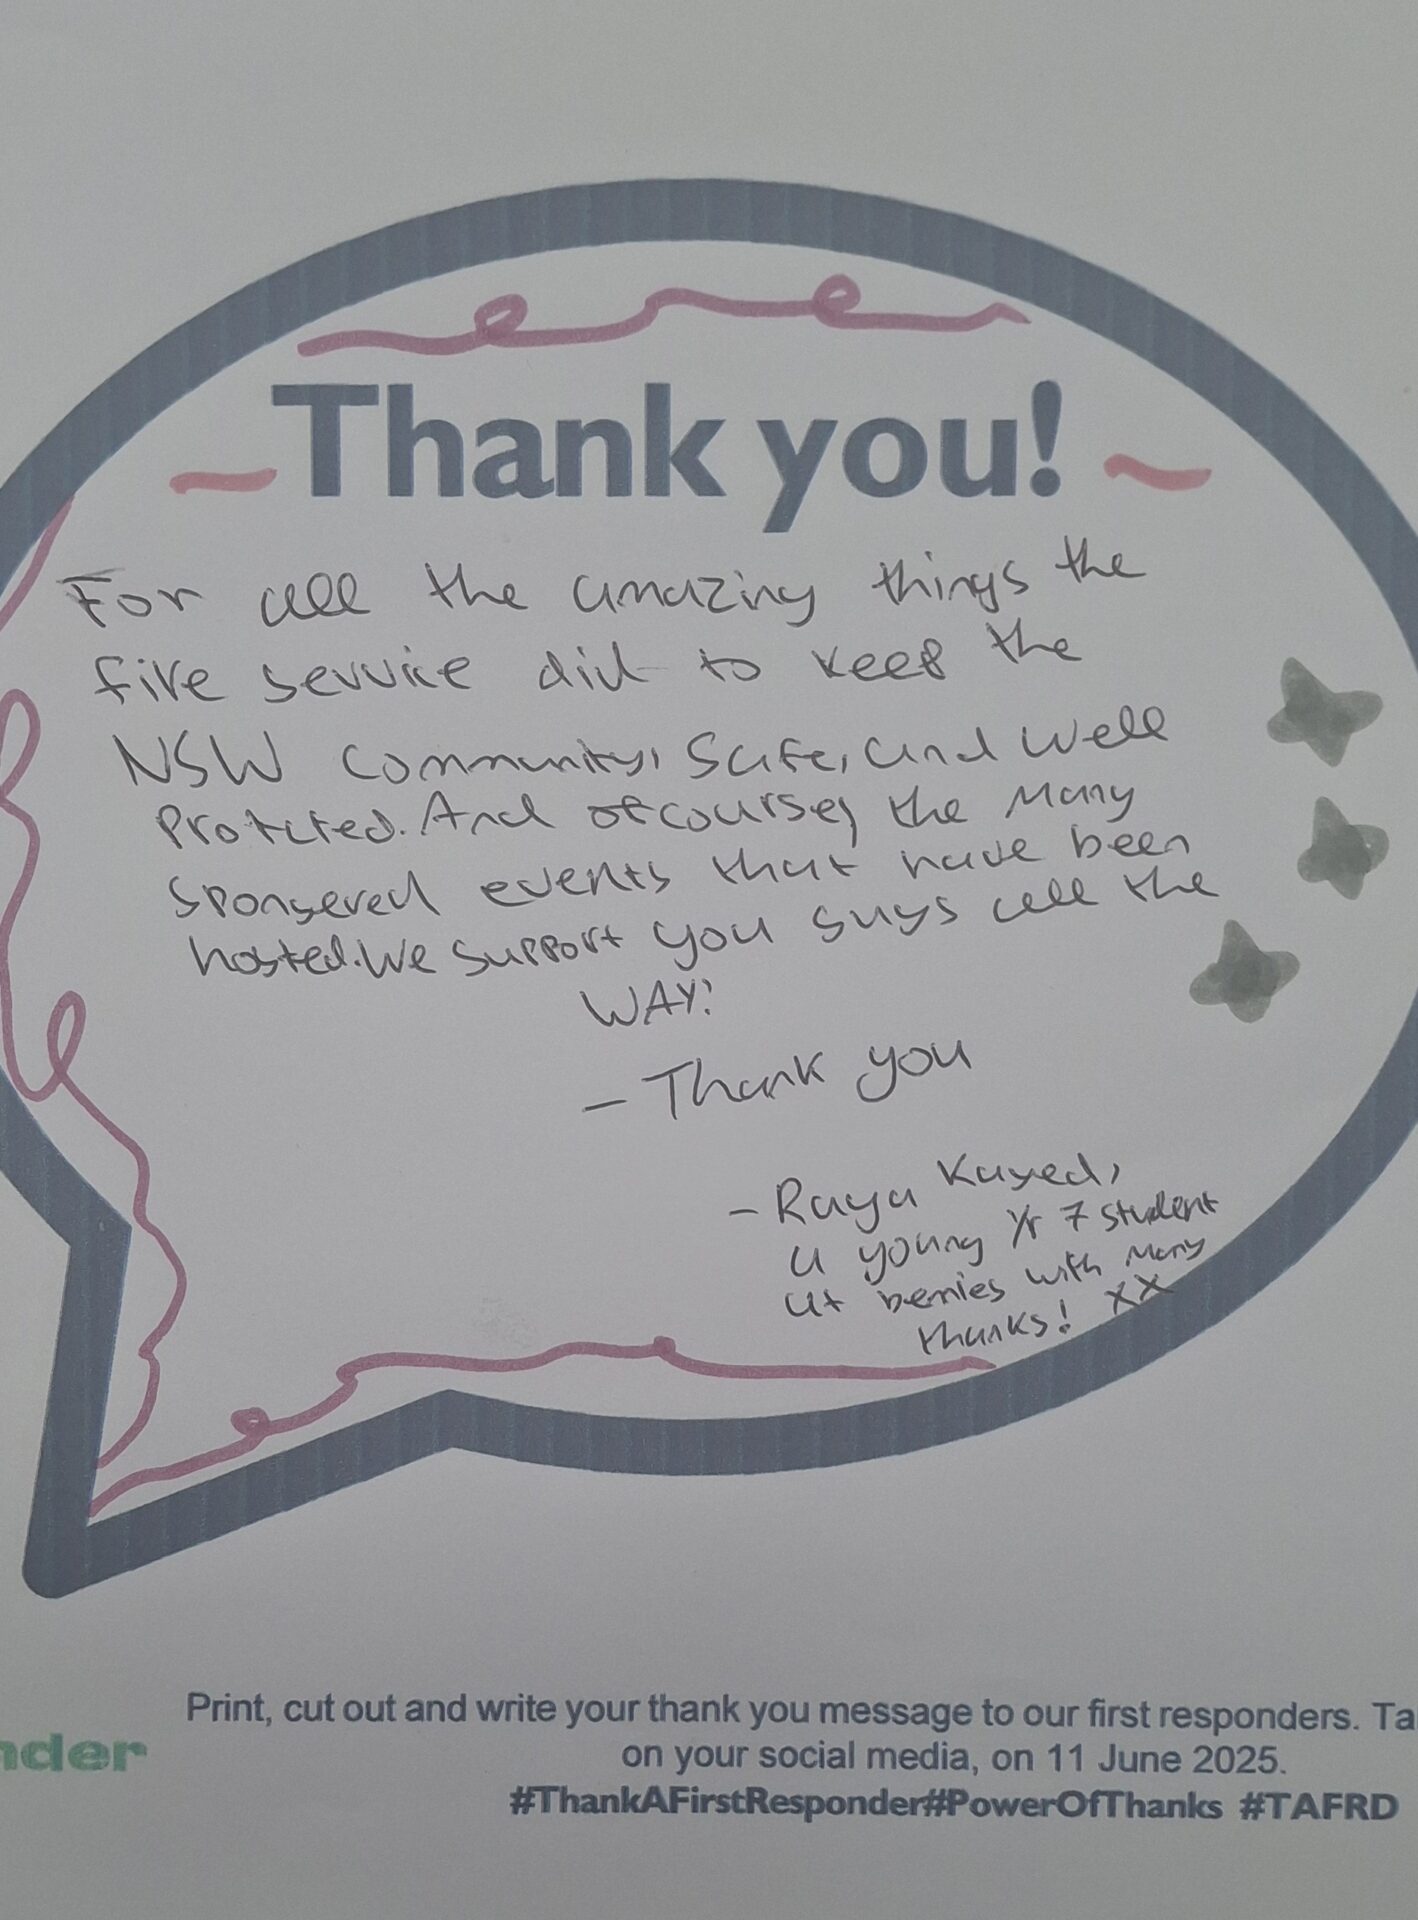 Thank you!
For all the amazing things the
fire service did to keep the
NSW community, safe, and well
protcted. And ofcourse, the many
sponsered events that have been
hosted. We support you guys all the
WAY!
- Thank you
- Raya Kayed,
a young Yr 7 student
at bernies with many
thanks! XX
Print, cut out and write your thank you message to our first responders. Ta
nder
on your social media, on 11 June 2025.
#ThankAFirstResponder#PowerOfThanks #TAFRD